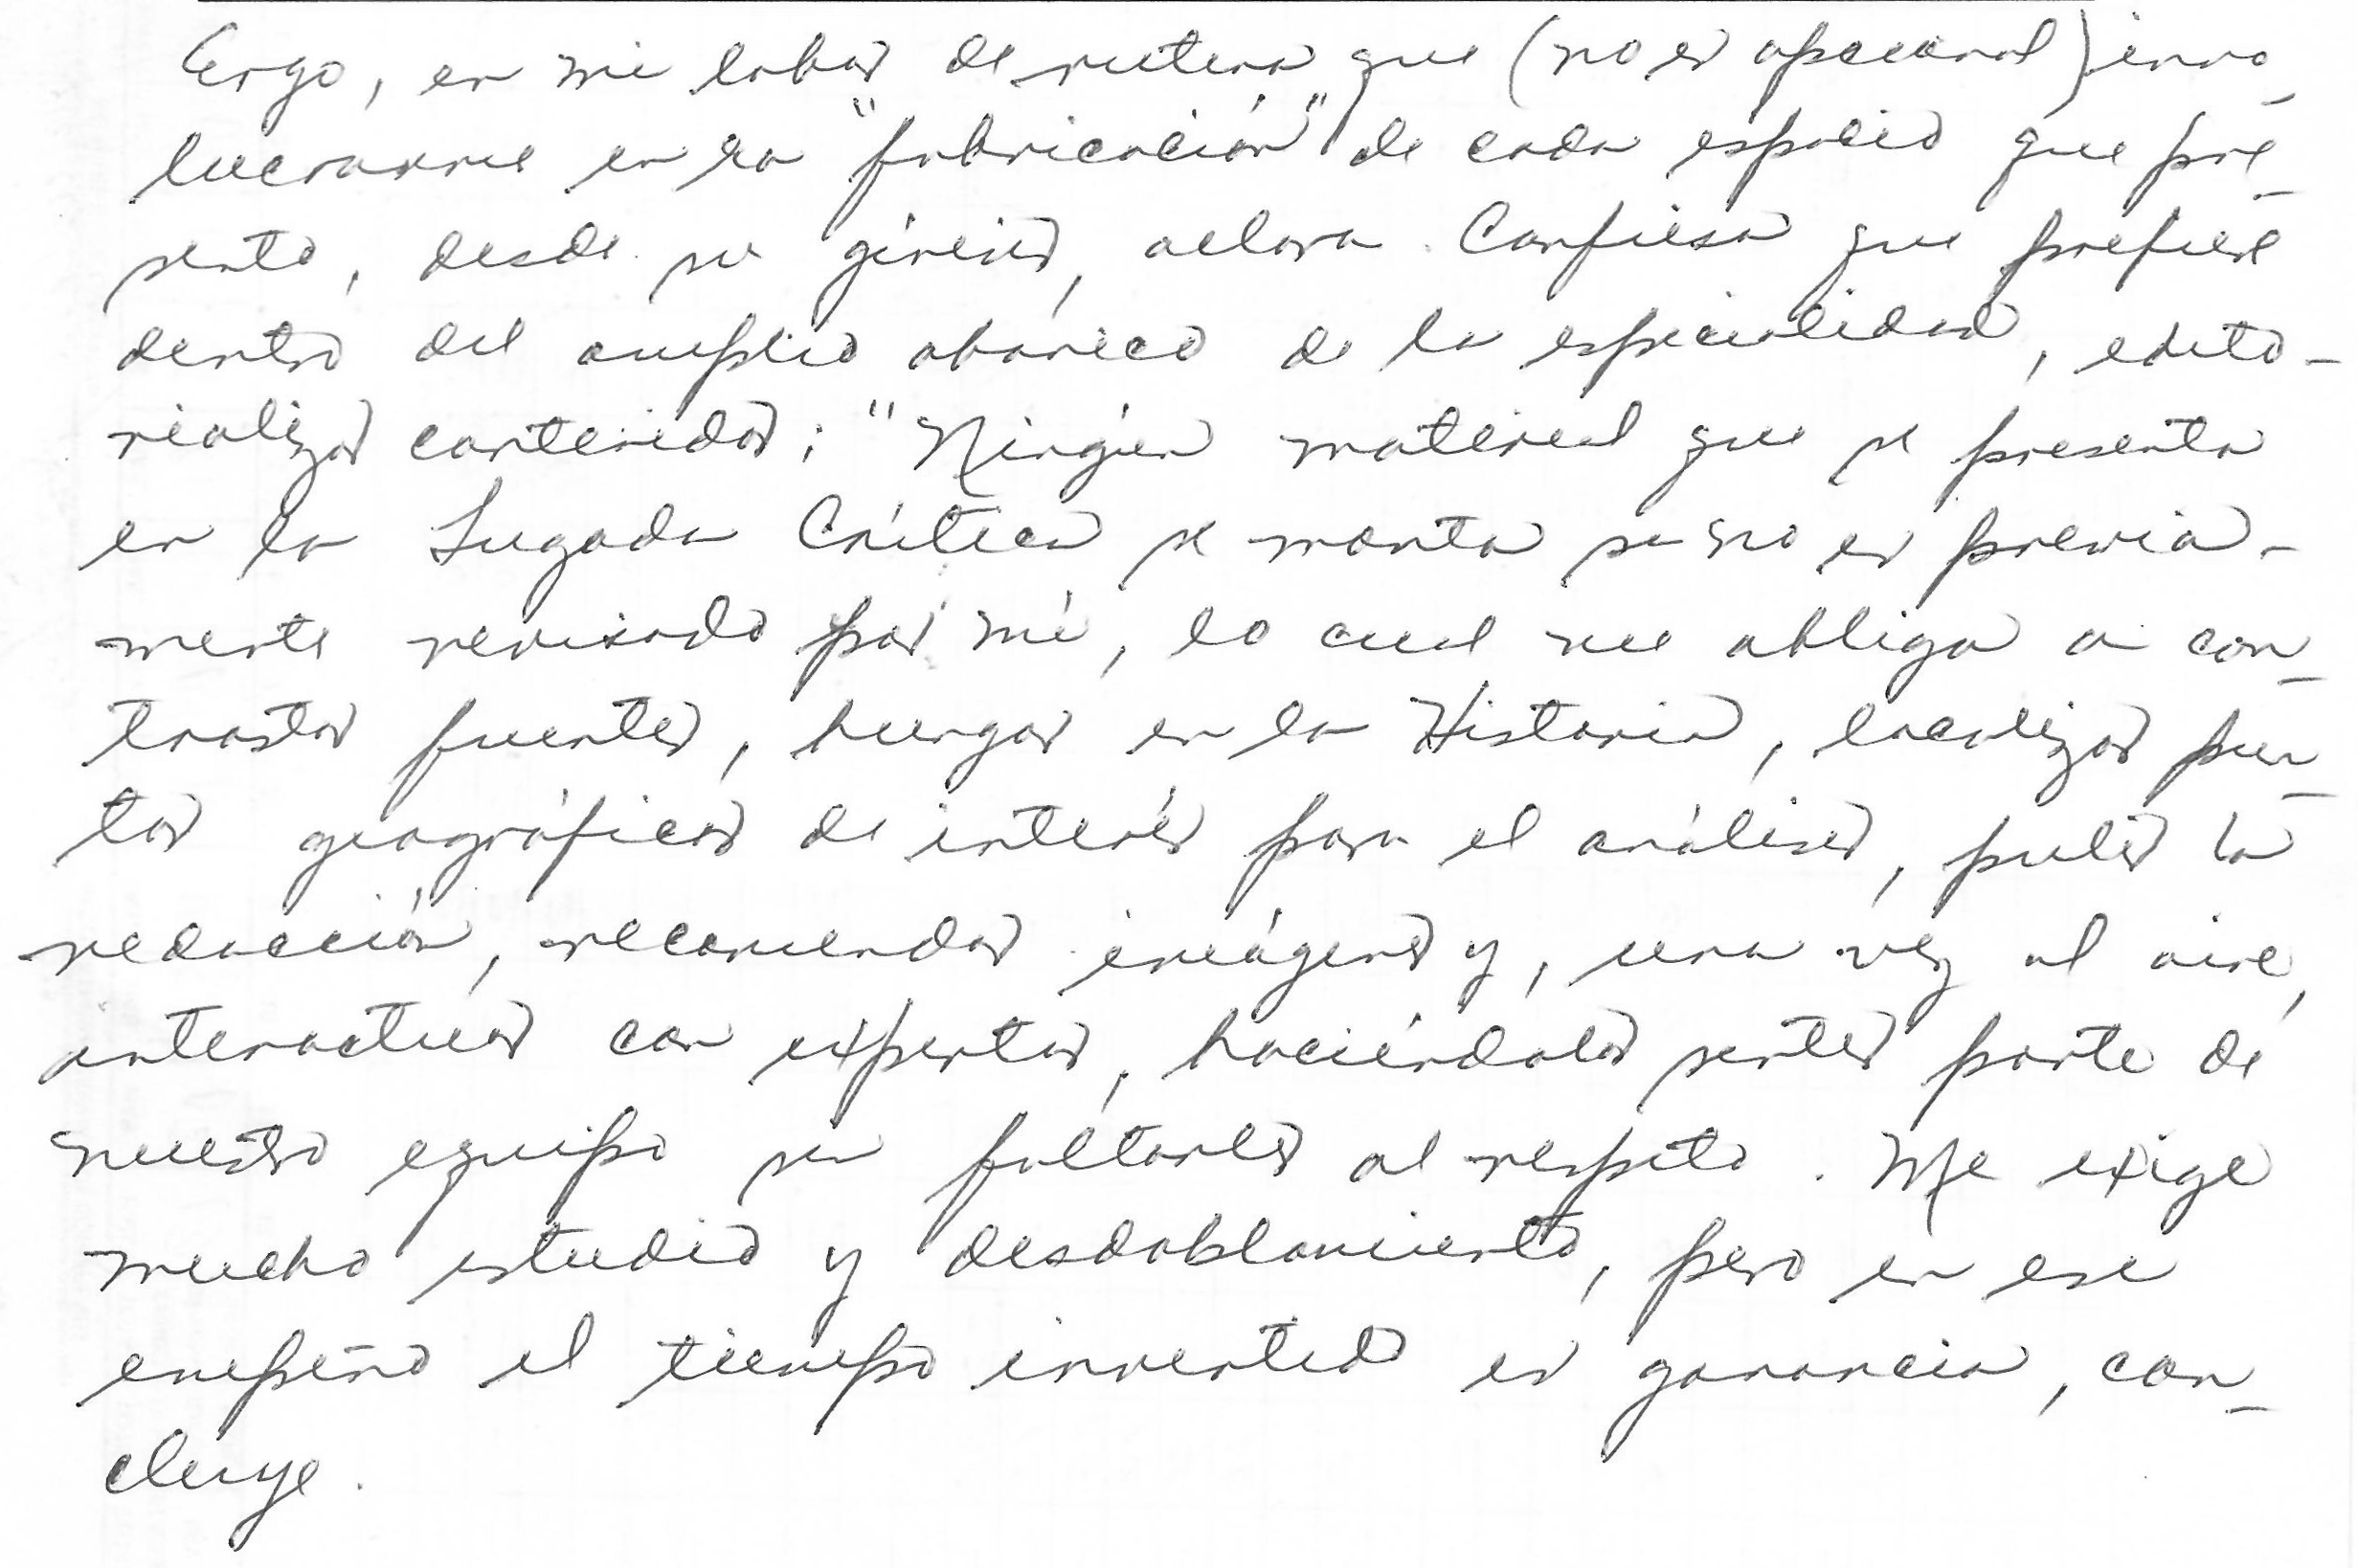 Ergo, en mi labor de rutina que (no es opcional) invo-
lucrarme en la "fabricación" de cada espacio que pre-
sento, desde su génesis, aclara. Confiesa que prefiere
dentro del amplio abanico de la especialidad, edito-
rializar contenidos: "Ningún material que se presenta
en la Jugada Crítica se monta si no es previa-
mente revisado por mí, lo cual me obliga a con-
trastar fuentes, hurgar en la Historia, localizar pun-
tos geográficos de interés para el análisis, pulir la
redacción, recomendar imágenes y, una vez al aire,
interactuar con expertos, haciéndolos sentir parte de
nuestro equipo sin faltarles al respeto. Me exige
mucho estudio y desdoblamiento, pero en ese
empeño el tiempo invertido es ganancia, con-
cluye.